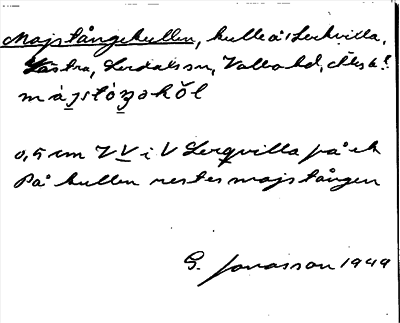 Majstångekullen, kulle å Lerkvilla,
Västra, Lerdala sn, Valle hd,
májstòŋəkŏl
0,5 cm V V i V Lerqvilla på ek
På kullen restes majstången
G. Jonasson 1949